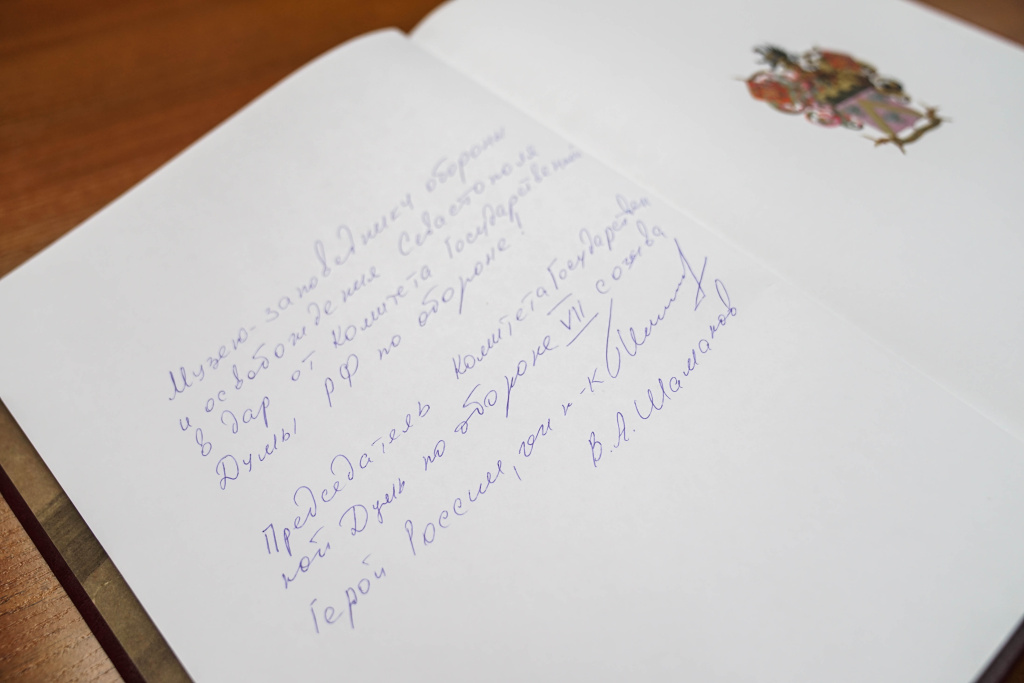 Музею-заповеднику обороны
и освобождения Севастополя
в дар от Комитета Государственной
Думы РФ по обороне!
Председатель Комитета Государствен
ной Думы по обороне VII созыва
Герой России, ген п-к
В.А. Шаманов